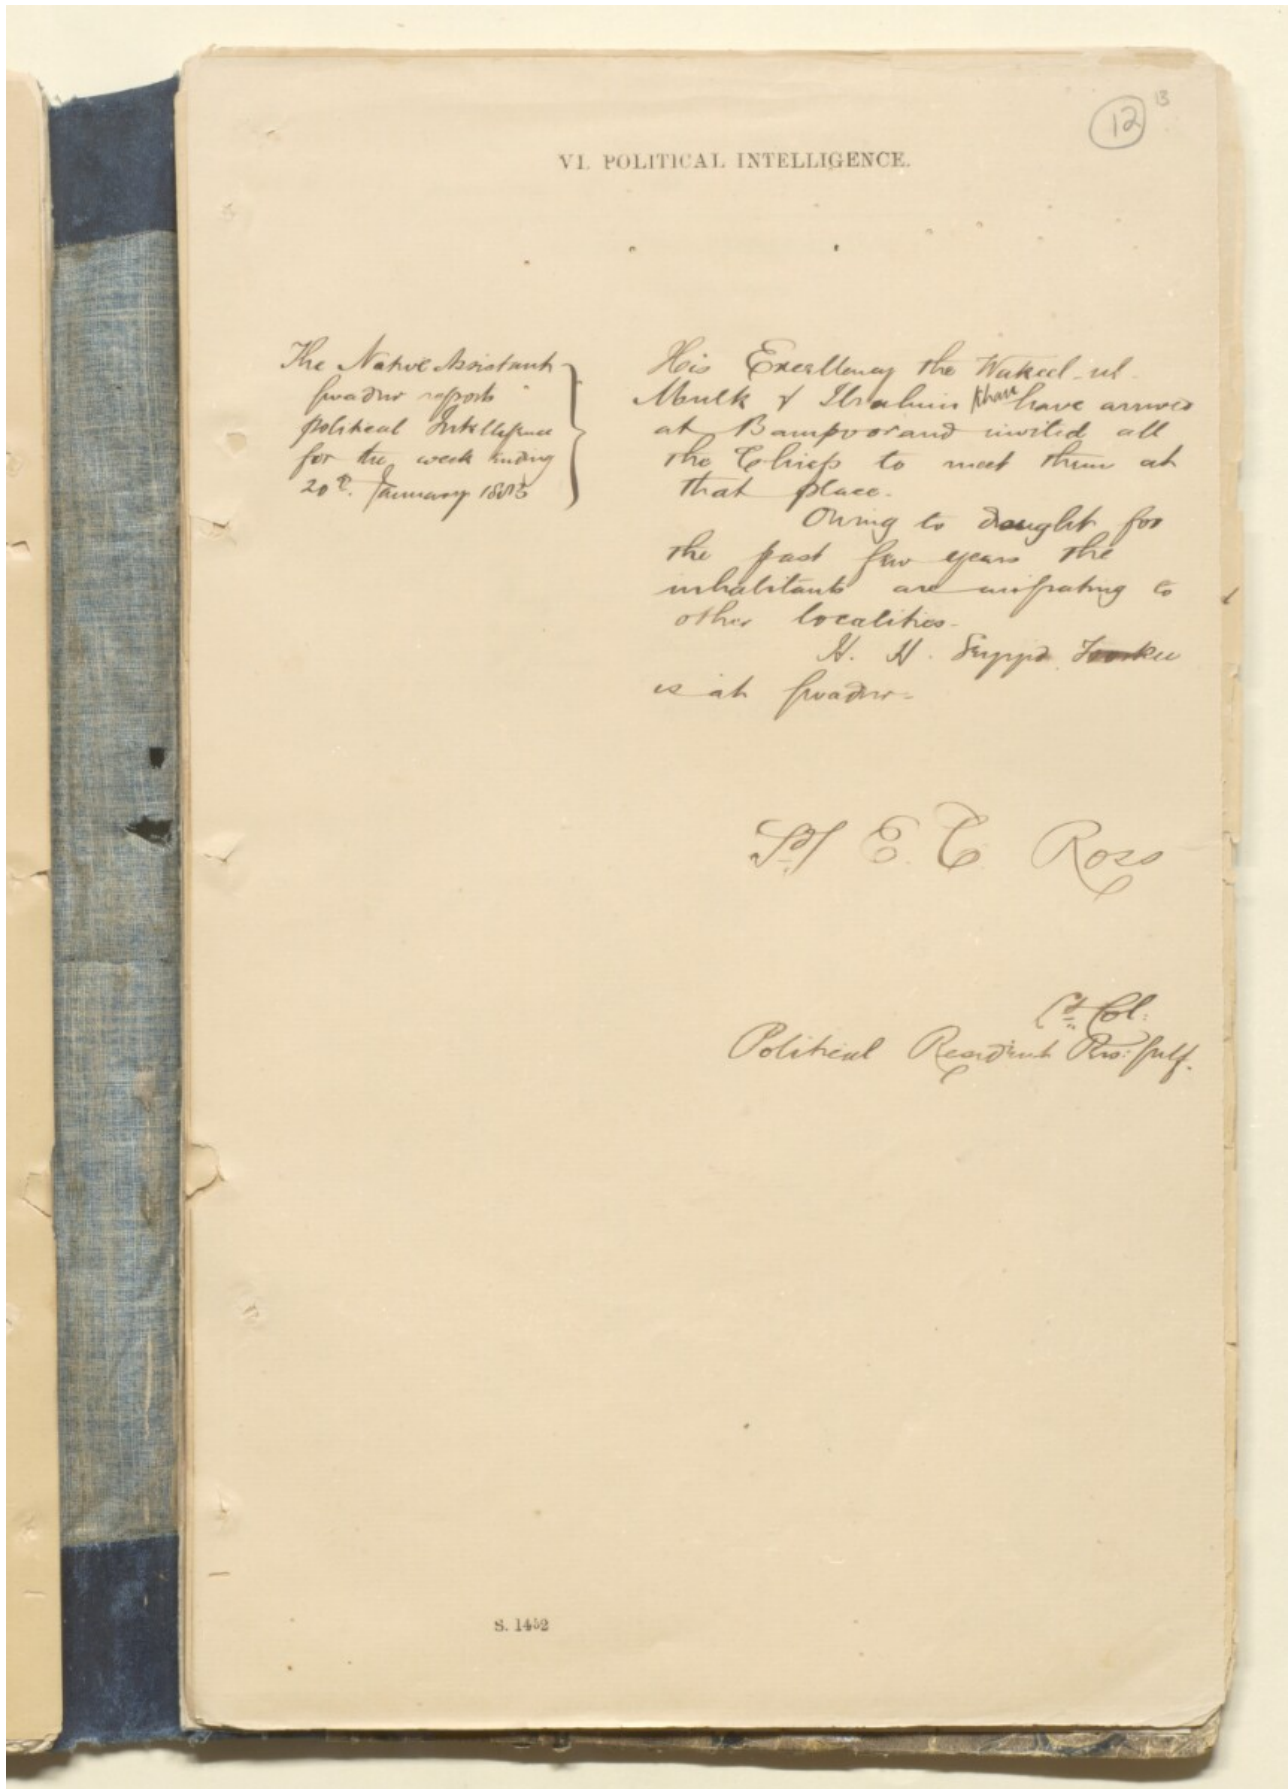 12
13
VI. POLITICAL INTELLIGENCE.
The Native Assistant
Gwadur reports
political Intelligence
for the week ending
20th January 1883
His Excellency the Wakeel-ul-
Mulk & Ibrahim Khan have arrived
at Bampoor and invited all
the Chiefs to meet them at
that place.
Owing to drought for
the past few years the
inhabitants are migrating to
other localities-
H. H. Seyyid Toorkee
is at Gwadur-
Sd/ E. C. Ross
Lt. Col:
Political Resident Pers: Gulf.
S. 1452